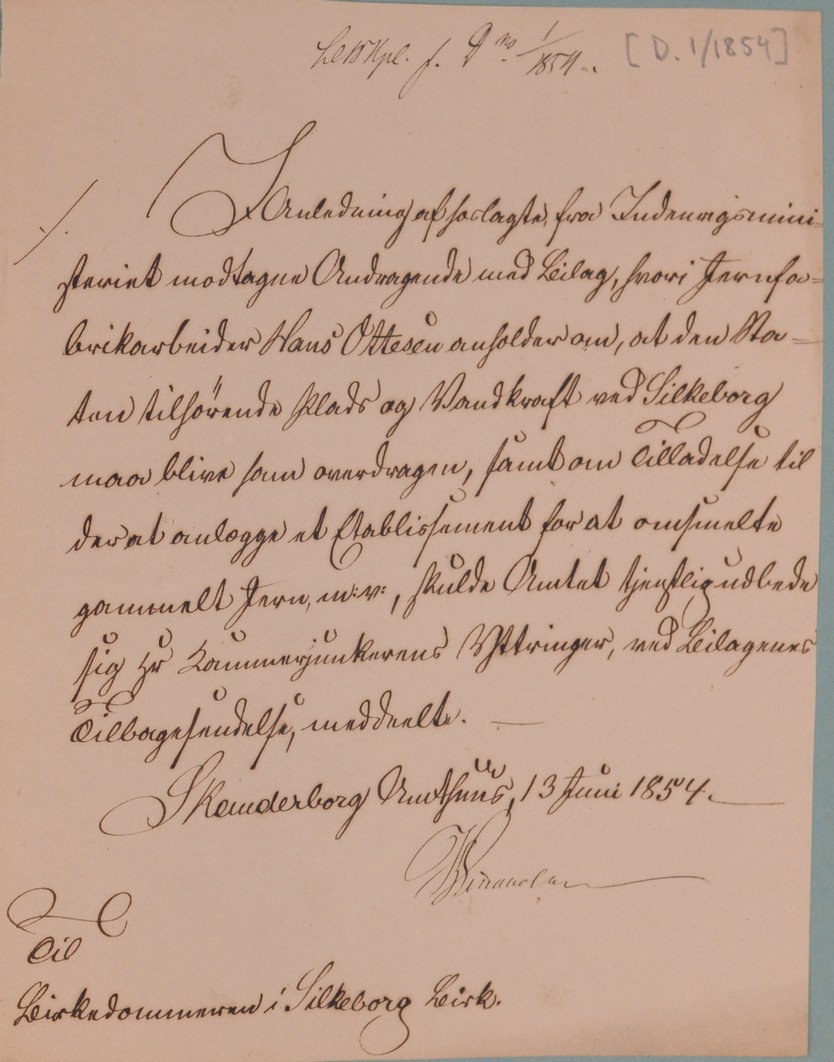 f. D No 1/1854. [D. 1/1854]
./. I Anledning af hoslagte, fra Indenrigsmini-
steriet modtagne Andragende med Bilag, hvori Jernfa-
brikarbeider Hans Ottesen anholder om, at den Sta-
ten tilhørende Plads og Vandkraft ved Silkeborg
maa blive ham overdragen, samt om Tilladelse til
der at anlægge et Etablissement for at omsmelte
gammelt Jern, m: v:, skulde Amtet tjenstlig udbede
sig Hr Kammerjunkerens Yttringer, ved Bilagenes
Tilbagesendelse, meddeelte. —
Skanderborg Amthuus, 13 Juni 1854.
Til
Birkedommeren i Silkeborg Birk.